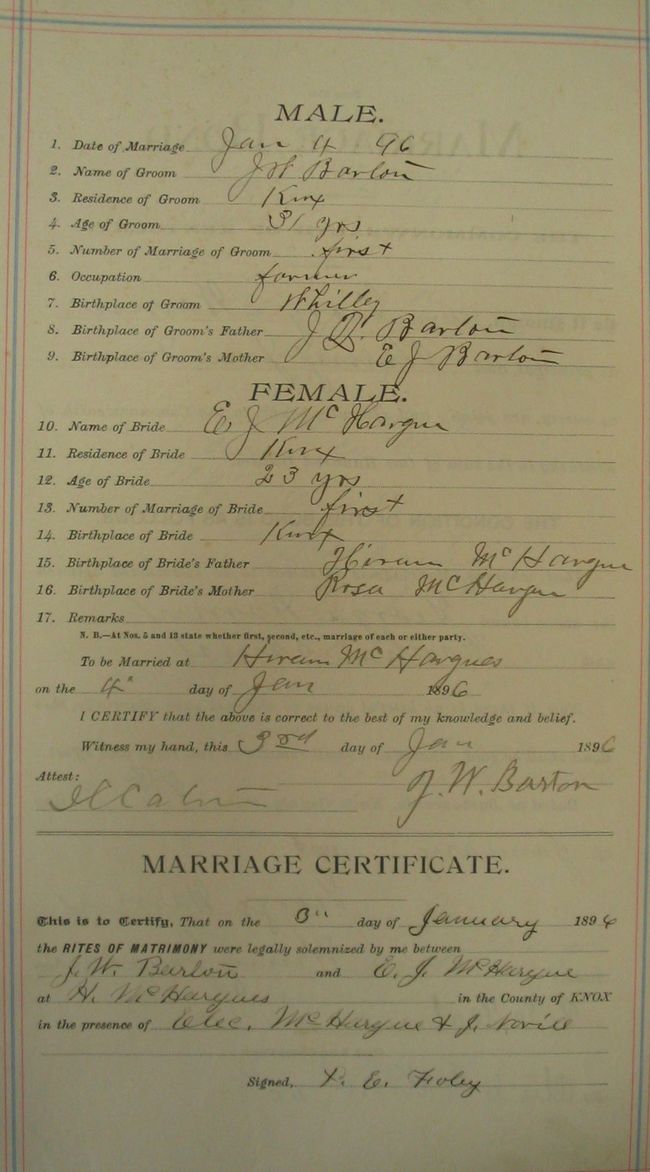 MALE.
1. Date of Marriage Jan 4 96
2. Name of Groom J W Barton
3. Residence of Groom Knox
4. Age of Groom 31 yrs
5. Number of Marriage of Groom first
6. Occupation farmer
7. Birthplace of Groom Whitley
8. Birthplace of Groom's Father J Barton
9. Birthplace of Groom's Mother E J Barton
FEMALE.
10. Name of Bride E J McHargue
11. Residence of Bride Knox
12. Age of Bride 23 yrs
13. Number of Marriage of Bride first
14. Birthplace of Bride Knox
15. Birthplace of Bride's Father Hiram McHargue
16. Birthplace of Bride's Mother Rosa McHargue
17. Remarks
N. B.—At Nos. 5 and 13 state whether first, second, etc., marriage of each or either party.
To be Married at Hiram McHargues
on the 4" day of Jan 1896
I CERTIFY that the above is correct to the best of my knowledge and belief.
Witness my hand, this 3rd day of Jan 1896
Attest: J. W. Barton
MARRIAGE CERTIFICATE.
This is to Certify, That on the day of January 1896
the RITES OF MATRIMONY were legally solemnized by me between
J. W. Barton and E. J. McHargue
at H. McHargues in the County of KNOX
in the presence of McHargue & J.
Signed, E. Foley